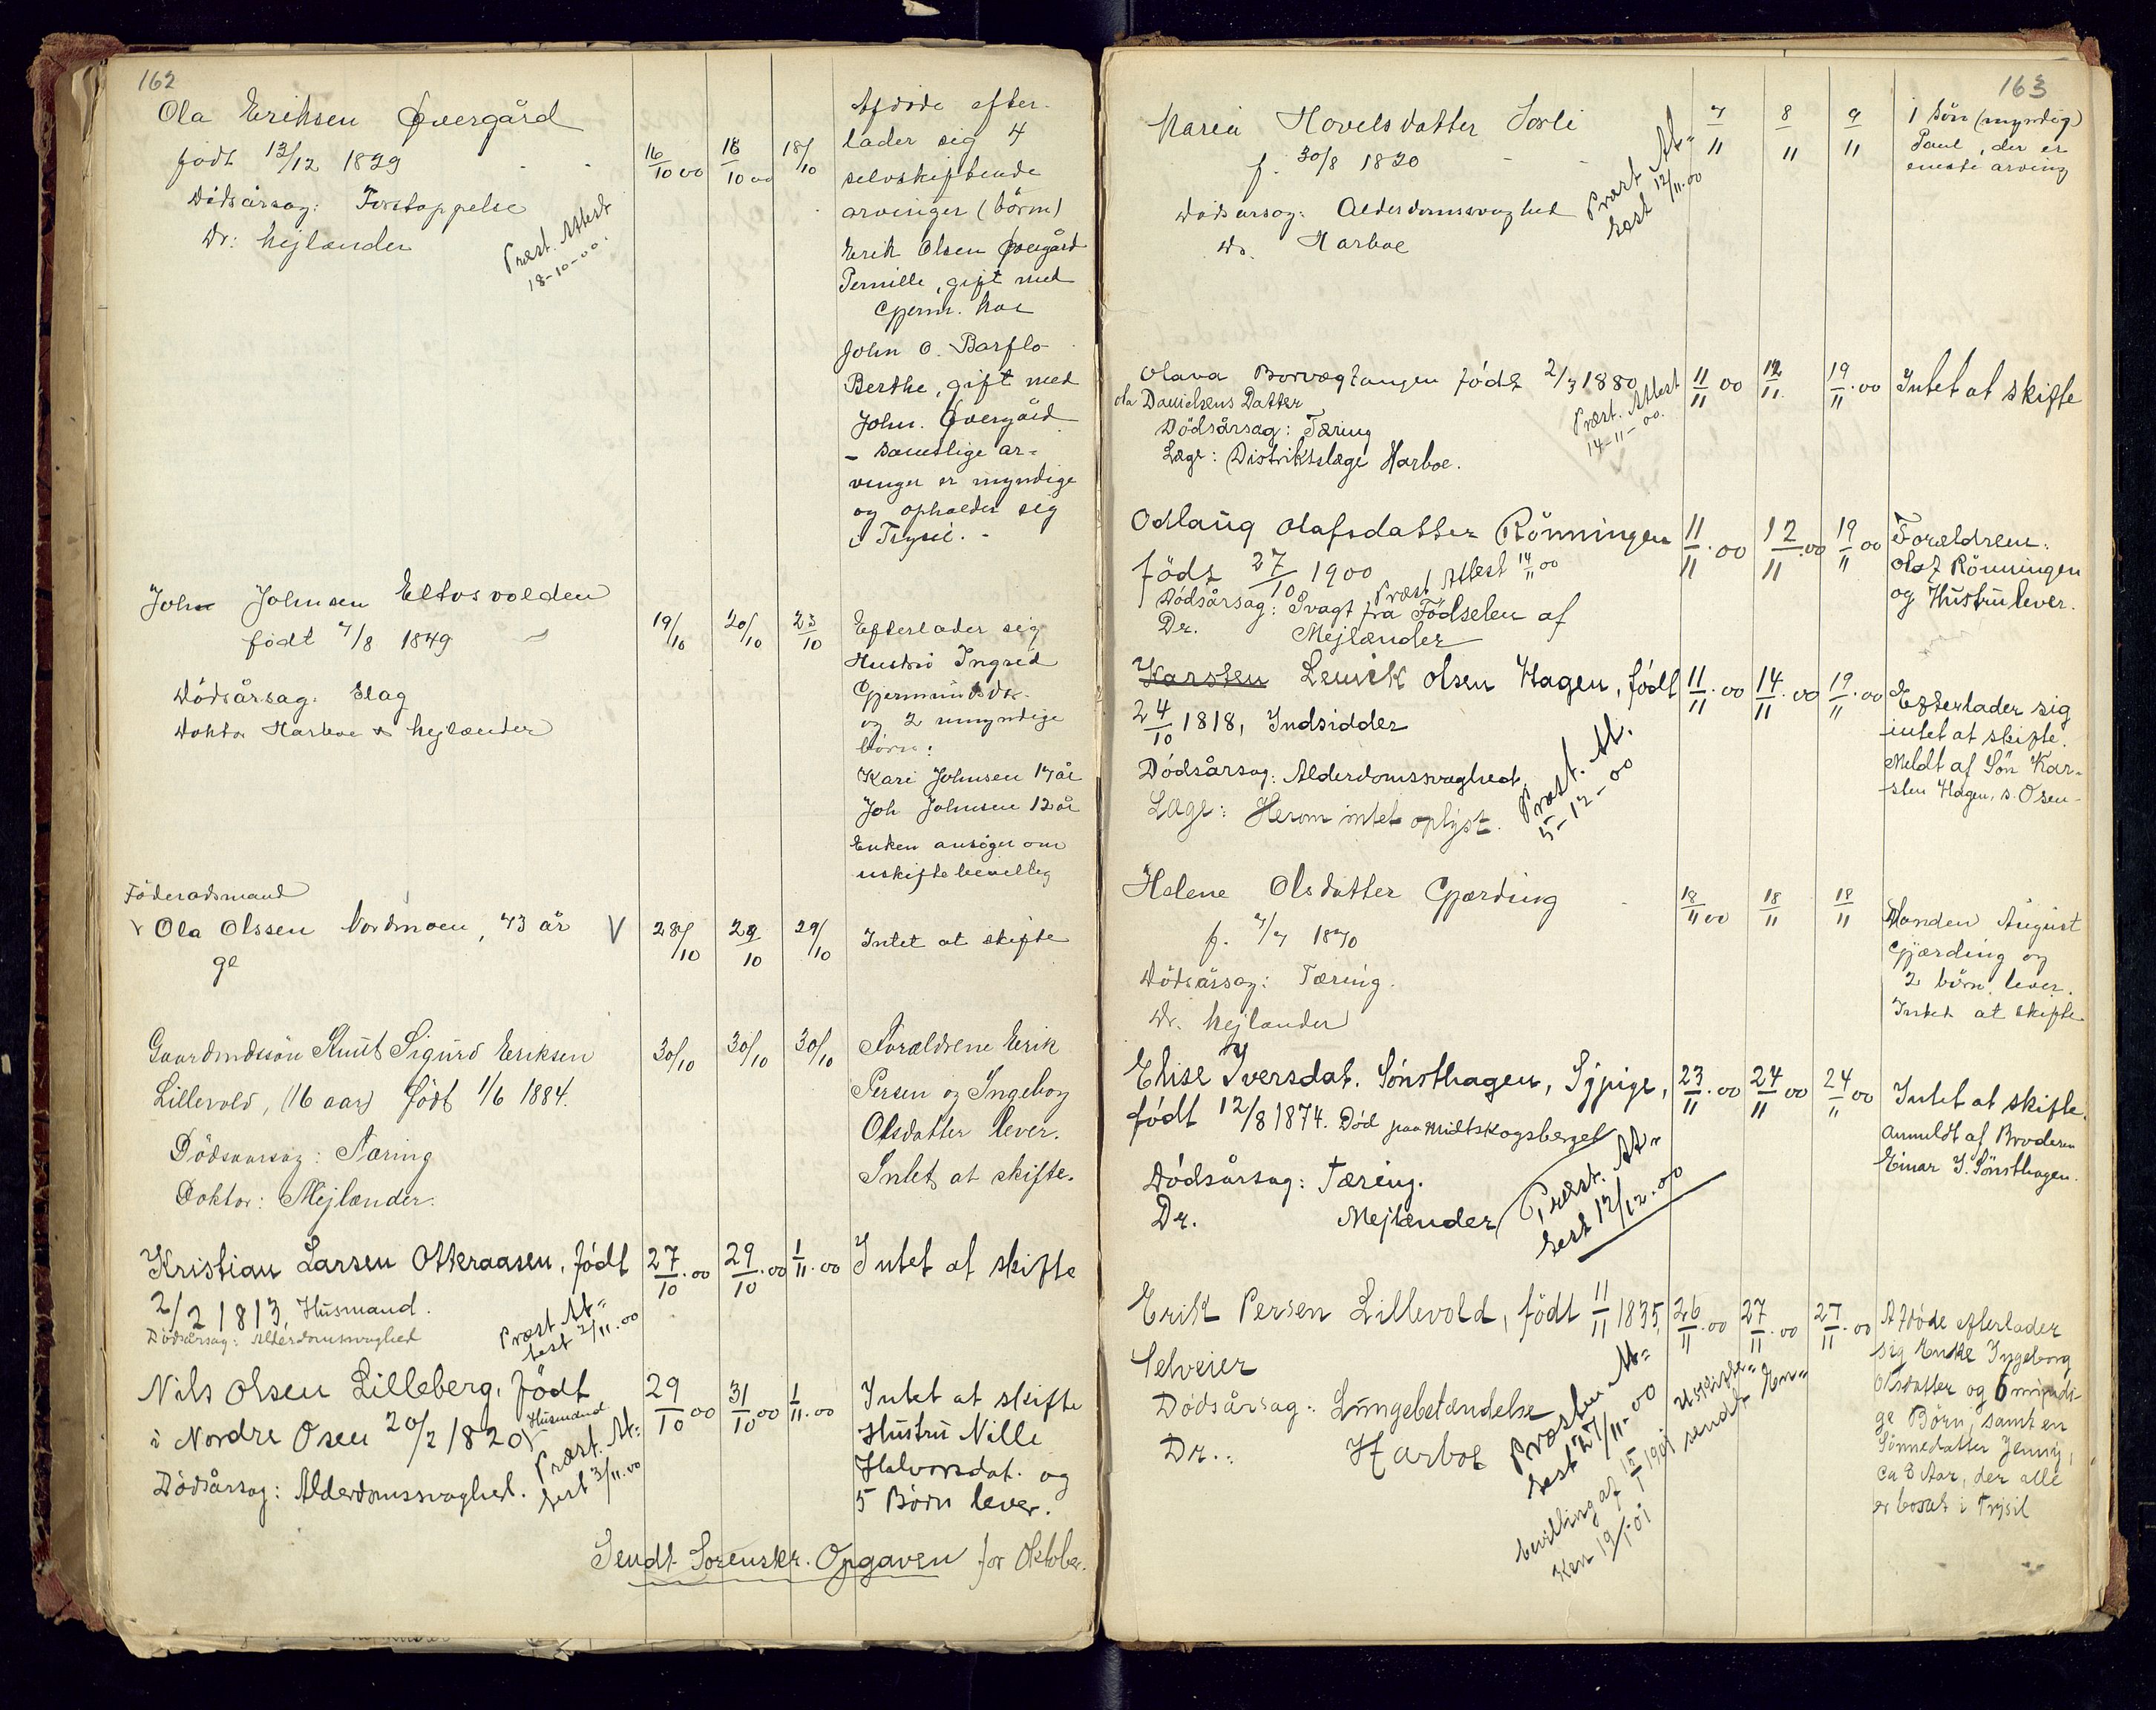 162
Ola Eriksen Øvergård
født 13/12 1829
Dödsårsag: Forstoppelse
Dr: Mejlænder
Præst. Attest
18-10-00.
16/10 00
18/10 00
18/10
Afdöde efter-
lader sig 4
selvskiftende
arvinger (börn)
Erik Olsen Øvergård
Pernille, gift med
Gjerm. Moe
John O. Barflo
Berthe, gift med
John. Øvergård
- samtlige ar-
vinger er myndige
og opholder sig
i Trysil. -
John Johnsen Eltosvolden
födt 7/8 1849
Dödsårsag: Slag
Doktor Harboe & Mejlænder
19/10
20/10
23/10
Efterlader sig
Hustru Ingred
Gjermundsdr.
og 2 umyndige
börn:
Kari Johnsen 17 år
Joh Johnsen 12 år
Enken ansöger om
uskiftebevilling
Föderadsmand
V Ola Olssen Nordmoen, 73 år V
ge
28/10
29/10
29/10
Intet at skifte
Gaardmdssön Knut Sigurd Eriksen
Lillevold, (16 aar) födt 1/6 1884.
Dödsaarsag: Tæring
Doktor: Mejlænder.
30/10
30/10
30/10
Foraldrene Erik
Persen og Ingeborg
Olsdatter lever.
Intet at skifte.
Kristian Larsen Otteraasen, födt
2/2 1813, Husmand.
Dödsårsag: Alderdomssvaghed
Præst At=
test 2/11.00
27/10.00
29/10.00
1/11.00
Intet at skifte
Nils Olsen Lilleberg, Födt
i Nordre Osen 20/2 1820, Husmand
Dödsårsag: Alderdomssvaghed.
Præst. At=
test 3/11.00
29/10 00
31/10 00
1/11.00
Intet at skifte
Hustru Nille
Halvorsdat. og
5 Börn lever.
Sendt Sorenskr. Opgaven for Oktober.
163
Maria Hovelsdatter Sorli
f. 30/8 1820
Dödsarsag: Alderdomssvaghed
Dr. Harboe
Præst At=
test 12/11.00
7/11
8/11
9/11
1 Sön (myndig)
Paul, der er
eneste arving
Olava Borvægtangen födt 2/3 1880
Ola Danielsens Datter
Dödsårsag: Tæring
Læge: Distriktslæge Harboe.
Præst. Attest
14-11-00.
11/11 00
12/11.
19/11.00
Intet at skifte
Odlaug Olafsdatter Rönningen
födt 27/10 1900
Præst Attest 14/11 00
Dödsårsag: Svagt fra Fødselen af
Dr. Mejlænder
11/11.00
12/11.00
19/11 00
Foreldrene:
Olaf Rönningen
og Hustru lever.
Karsten Lenvik Olsen Hagen, födt
24/10 1818, Indsidder
Dödsårsag: Alderdomssvaghed
Læge: Herom intet oplyst.
Præst. At.
5-12-00
11/11.00
14/11.00
19/11.00
Efterlader sig
intet at skifte.
Meldt af Sön Kar-
sten Hagen, s. Osen
Helene Olsdatter Gjærding
f. 7/7 1870
Dödsårsag: Tæring.
Dr. Mejlænder
18/11 00
18/11
18/11
Manden August
Gjærding og
2 börn lever.
Intet at skifte
Elise Iversdat. Sönsthagen, Sypige,
födt 12/8 1874. Död paa Midtskogsberget
Dödsårsag: Tæring.
Dr. Mejlænder
Præst. At=
test 12/12.00
23/11.00
24/11 00
24/11 00
Intet at skifte.
Anmeldt af Broderen
Einar I. Sönsthagen.
Erik Persen Lillevold, födt 11/11 1835,
Selveier
Dödsårsag: Lungebetændelse
Dr.: Harboe
Præsten At=
test 27/11-00
Uskifte=
bevilling af 15/1 1901 sendt En=
ken 19/1-01
26/11.00
27/11.00
27/11.00
Afdöde efterlader
sig Enke Ingeborg
Olsdatter og 6 myndi-
ge Börn, samt en
Sönnedatter Jenny,
ca 8 Aar, der alle
er bosat i Trysil